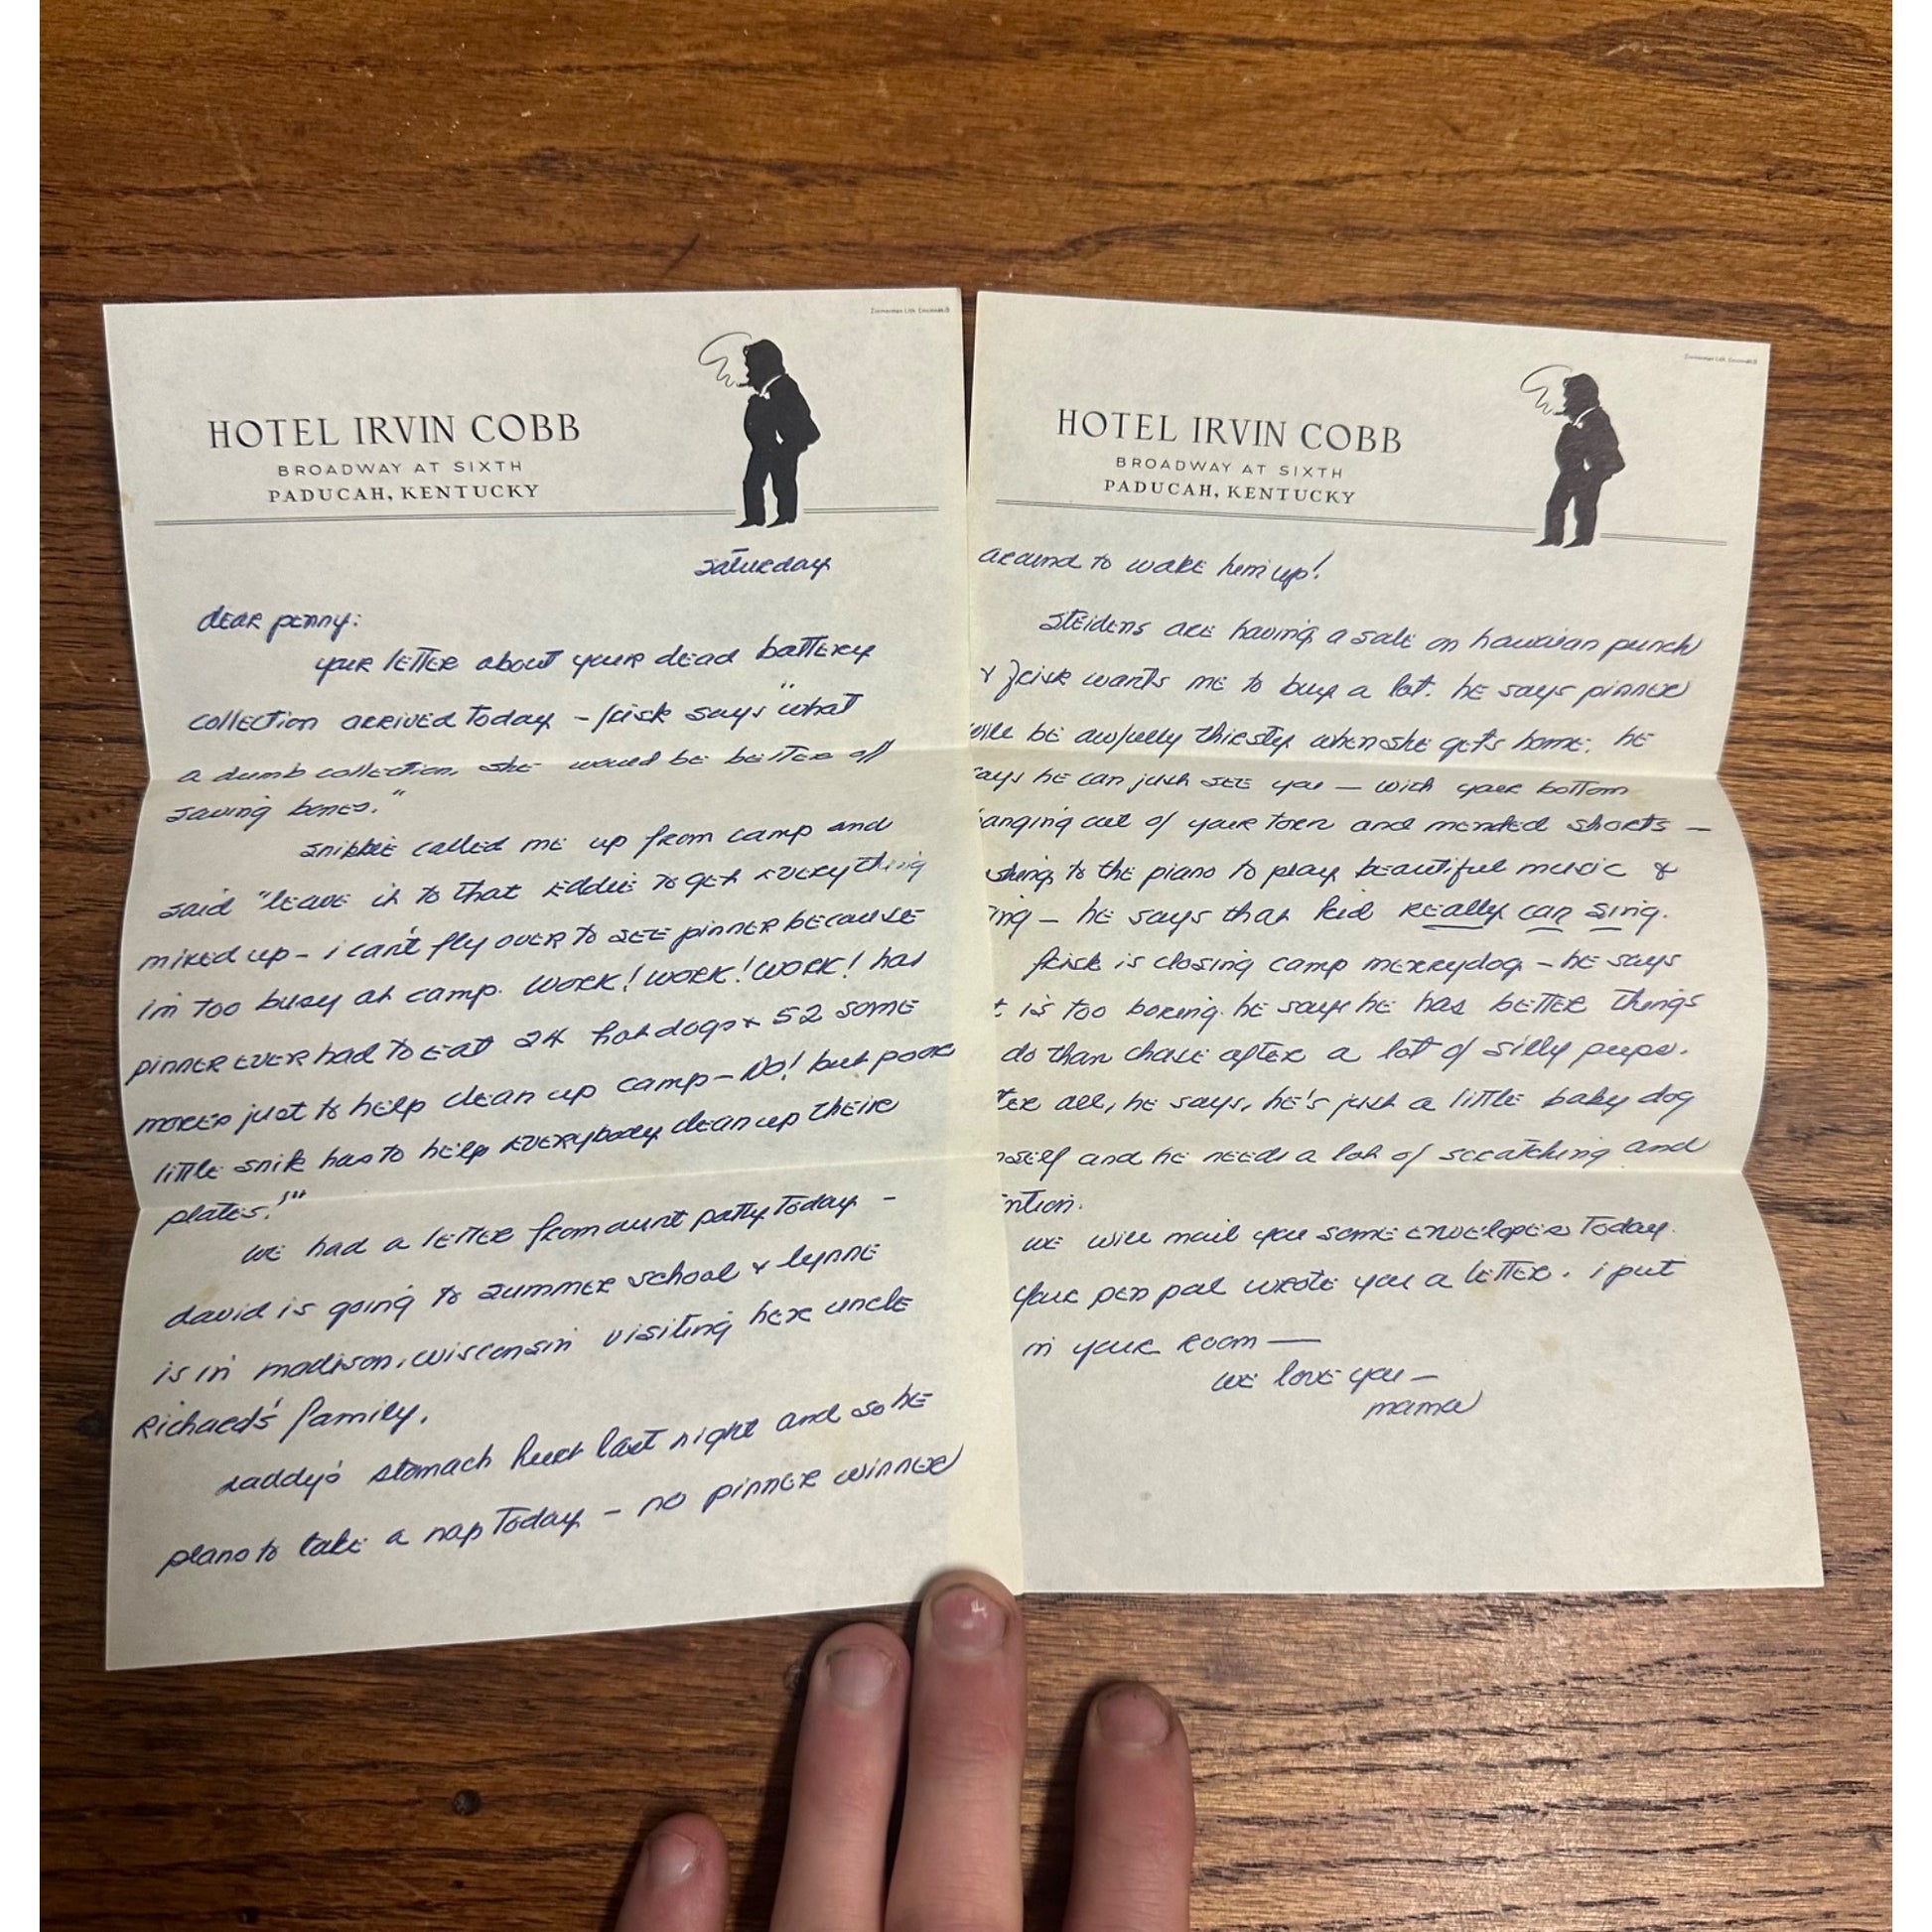 Zimmerman Lith. Cincinnati, O.
HOTEL IRVIN COBB
BROADWAY AT SIXTH
PADUCAH, KENTUCKY
saturday
dear penny:
your letter about your dead battery
collection arrived today - frisk says "what
a dumb collection, she would be better off
saving bones."
snibbie called me up from camp and
said "leave it to that eddie to get everything
mixed up - i can't fly over to see pinner because
i'm too busy at camp. WORK! WORK! WORK! has
pinner ever had to eat 24 hotdogs & 52 some
mores just to help clean up camp - NO! but poor
little snik has to help everybody clean up their
plates!"
we had a letter from aunt patty today -
david is going to summer school & lynne
is in madison, wisconsin visiting here uncle
Richard's family.
daddy's stomach hurt last night and so he
plans to take a nap today - no pinner winner
Zimmerman Lith. Cincinnati, O.
HOTEL IRVIN COBB
BROADWAY AT SIXTH
PADUCAH, KENTUCKY
around to wake him up!
steidens are having a sale on hawaiian punch
& frisk wants me to buy a lot. he says pinner
will be awfully thirsty when she gets home. he
says he can just see you — with your bottom
hanging out of your torn and mended shorts —
to the piano to play beautiful music &
ing - he says that kid really can sing.
frisk is closing camp merrydog - he says
t is too boring. he says he has better things
do than chase after a lot of silly pups.
ter all, he says, he's just a little baby dog
mself and he needs a lot of scratching and
ntion.
we will mail you some envelopes today.
your pen pal wrote you a letter. i put
in your room —
we love you -
mama